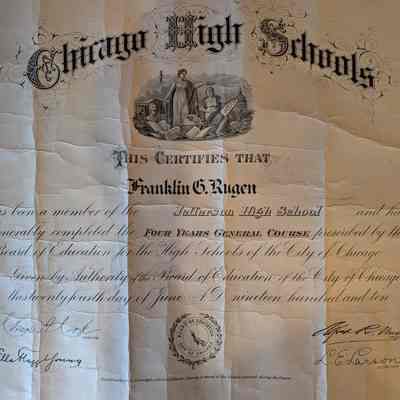 Chicago High Schools
THIS CERTIFIES THAT
Franklin G. Rugen
been a member of the Jefferson High School and
completed the FOUR YEARS GENERAL COURSE prescribed by the
Board of Education for the High Schools of the City of Chicago
Given by Authority of the Board of Education of the City of Chicago
this twenty fourth day of June A.D. nineteen hundred and ten
Ella Flagg Young
L.E. Larson